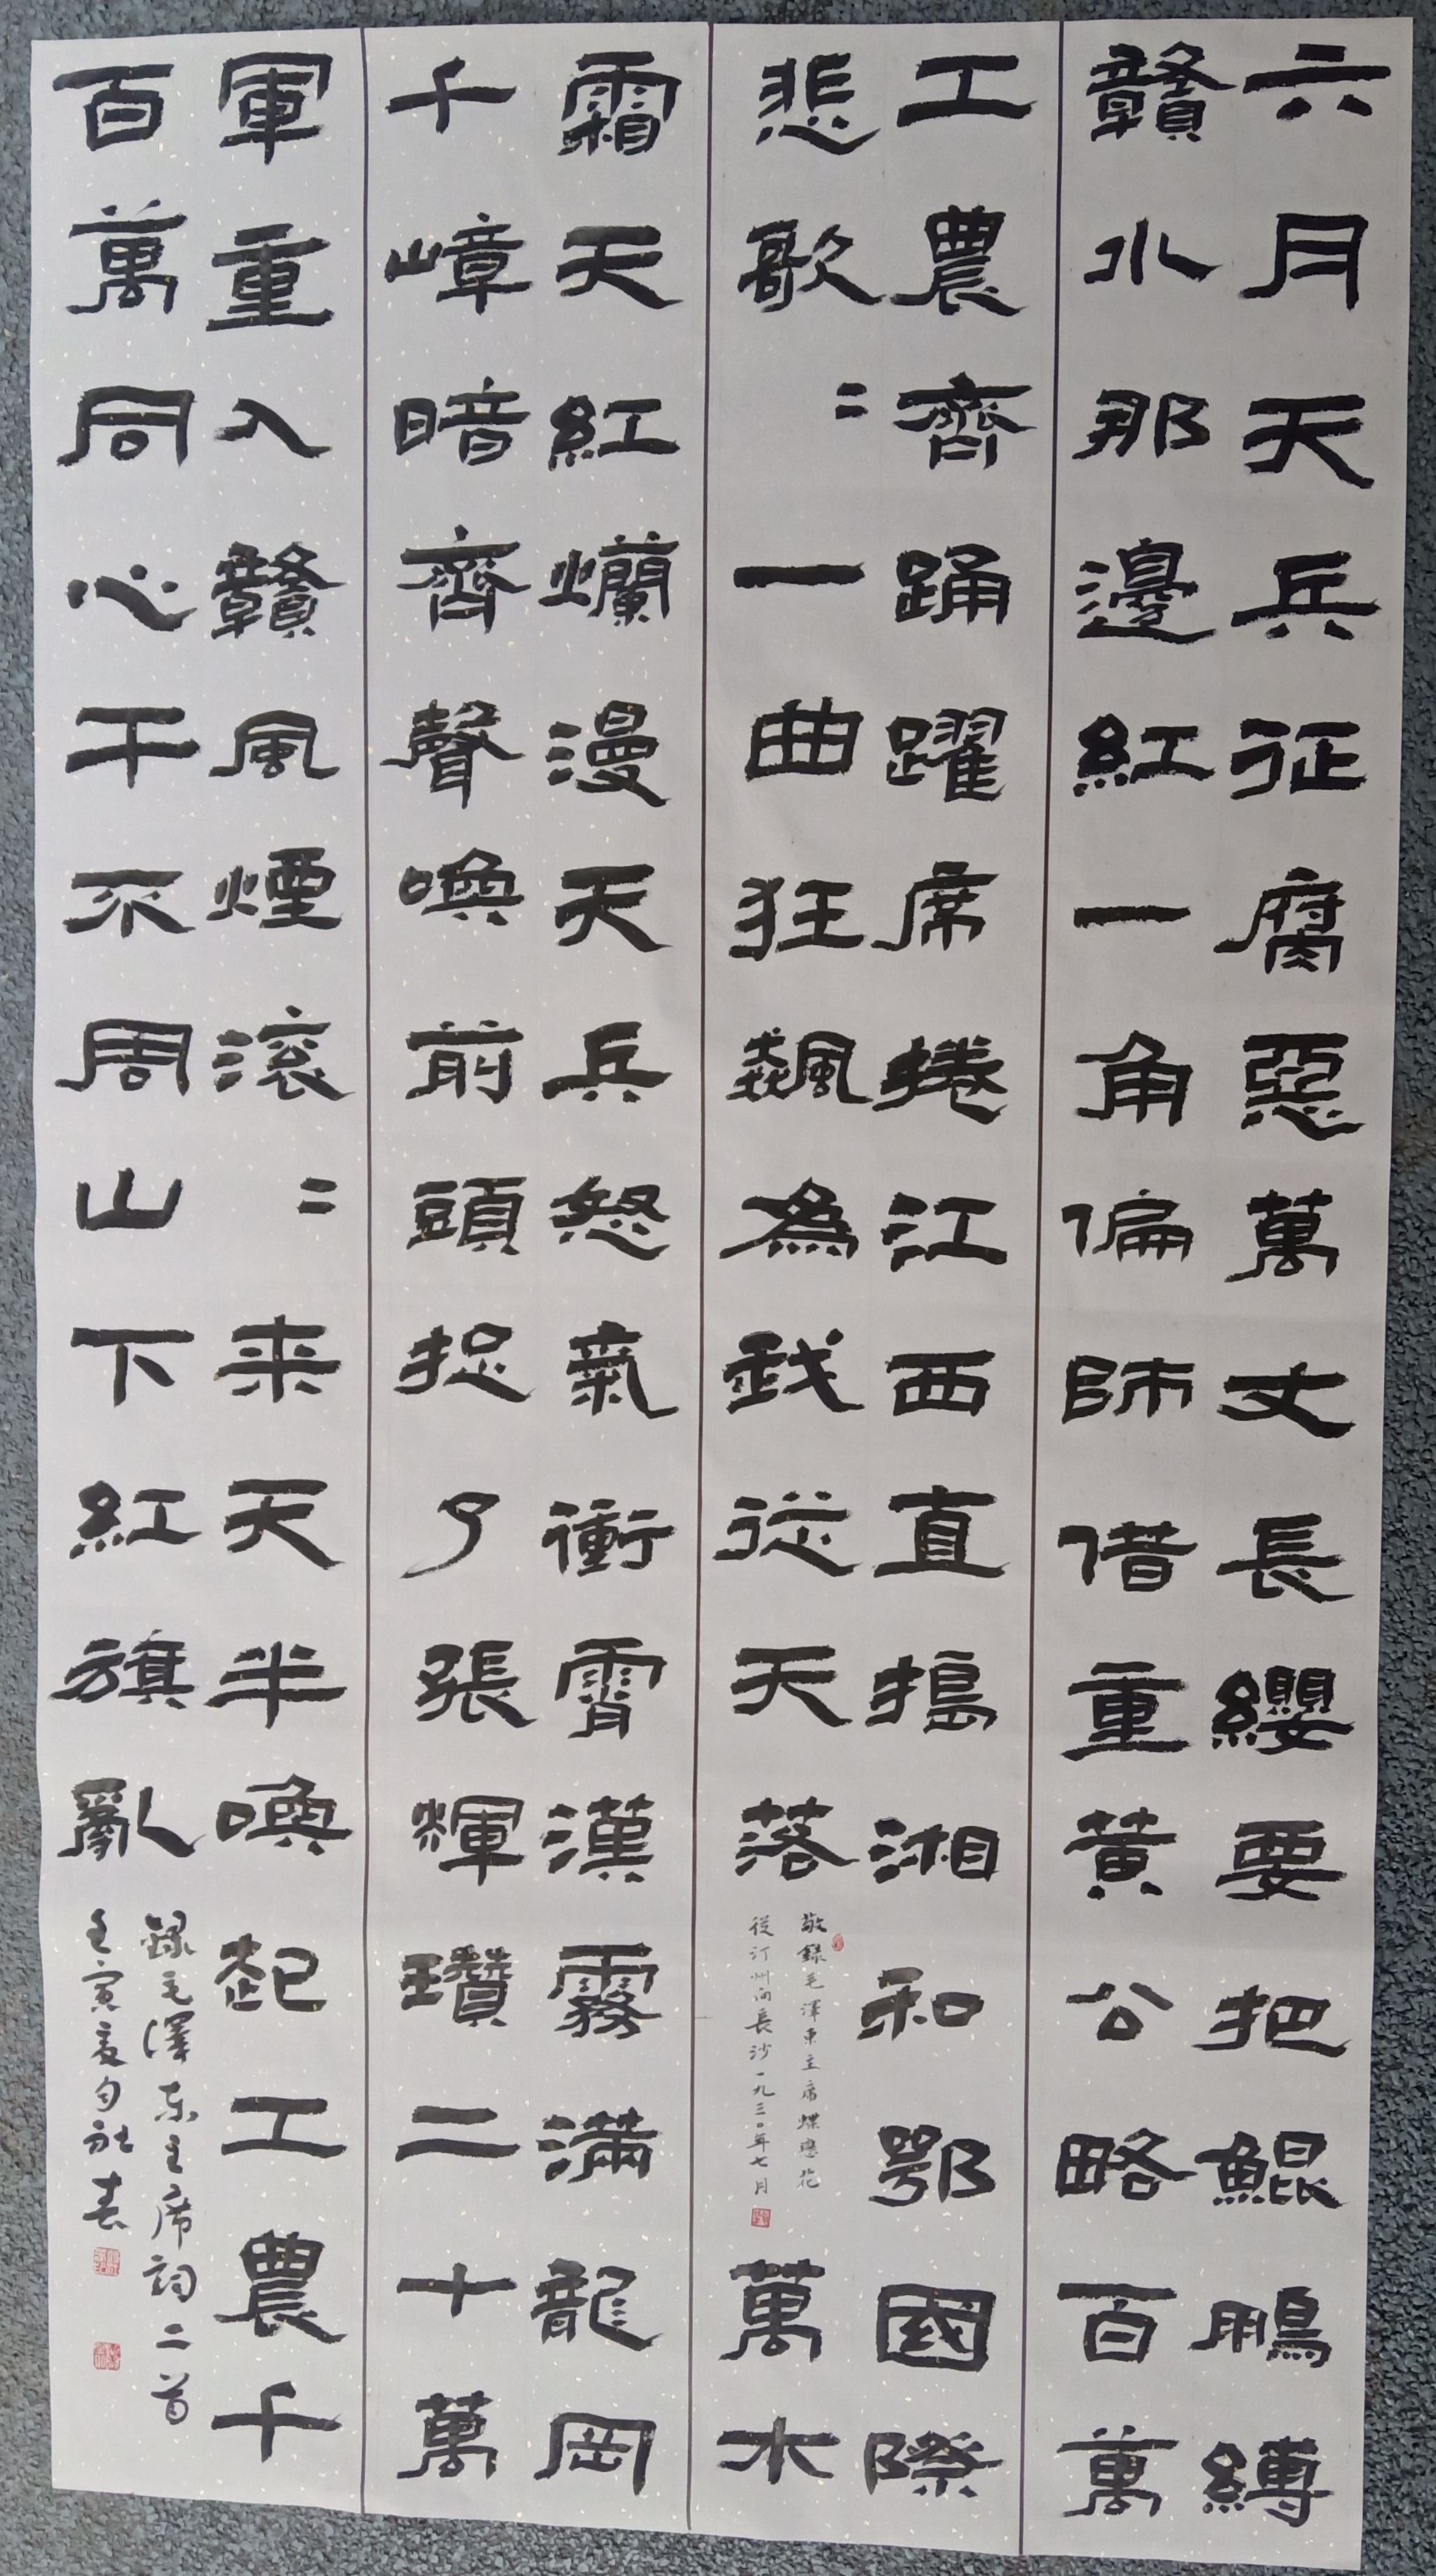 六月天兵征腐惡萬丈長纓要把鯤鵬縛
贛水那邊紅一角偏師借重黃公略百萬
工農齊踊躍席捲江西直搗湘和鄂國際
悲歌〻一曲狂飆為我從天落
敬錄毛澤東主席蝶戀花
從汀州向長沙一九三〇年七月
萬木
霜天紅爛漫天兵怒氣衝霄漢霧滿龍岡
千嶂暗齊聲喚前頭捉了張輝瓚二十萬
軍重入贛風煙滾〻来天半喚起工農千
百萬同心干不周山下紅旗亂
錄毛澤东主席詞二首
壬寅夏